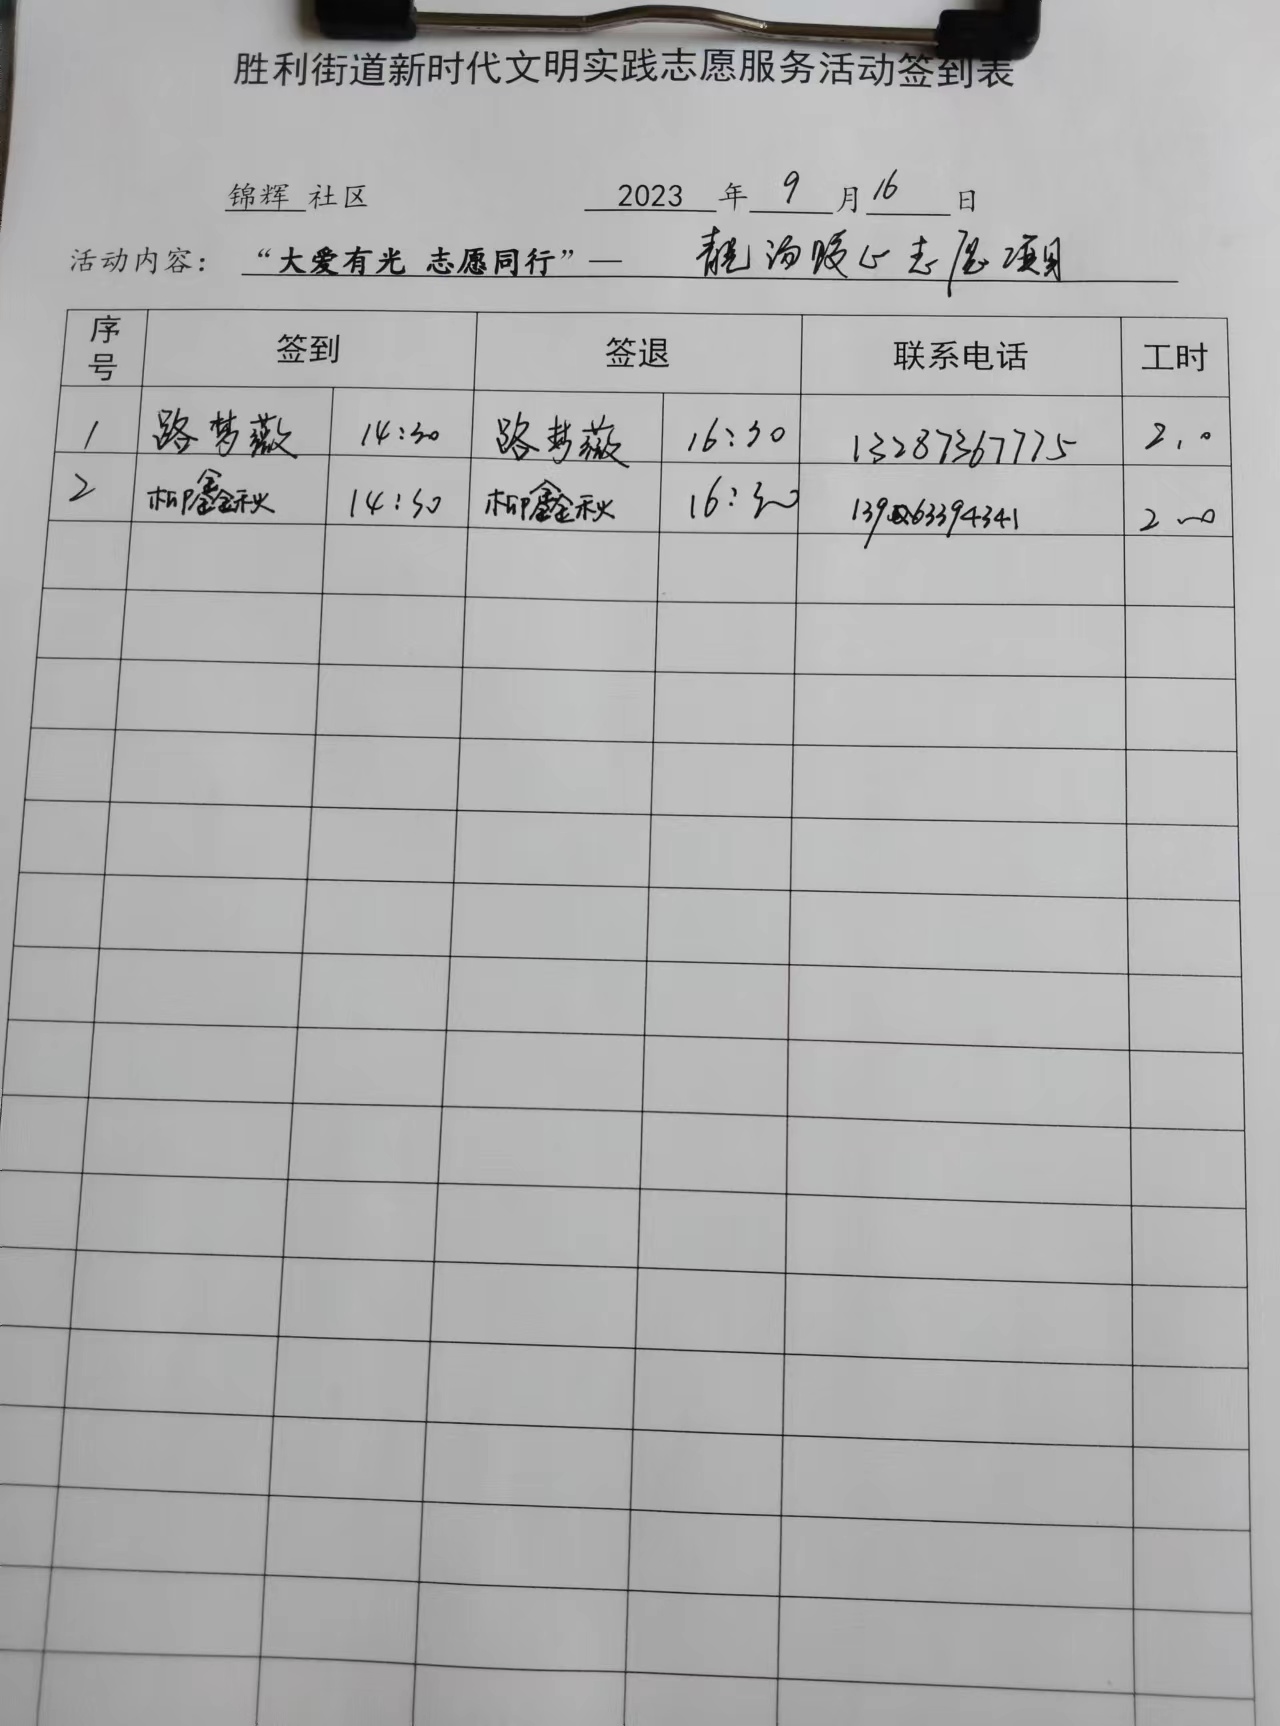 胜利街道新时代文明实践志愿服务活动签到表
锦辉 社区 2023 年 9 月 16 日
活动内容：“大爱有光 志愿同行”— 靓汤暖心志愿项目
序号 签到 签退 联系电话 工时
1 路梦薇 14:30 路梦薇 16:30 13287367775 2.0
2 柳鑫秋 14:30 柳鑫秋 16:30 2.0